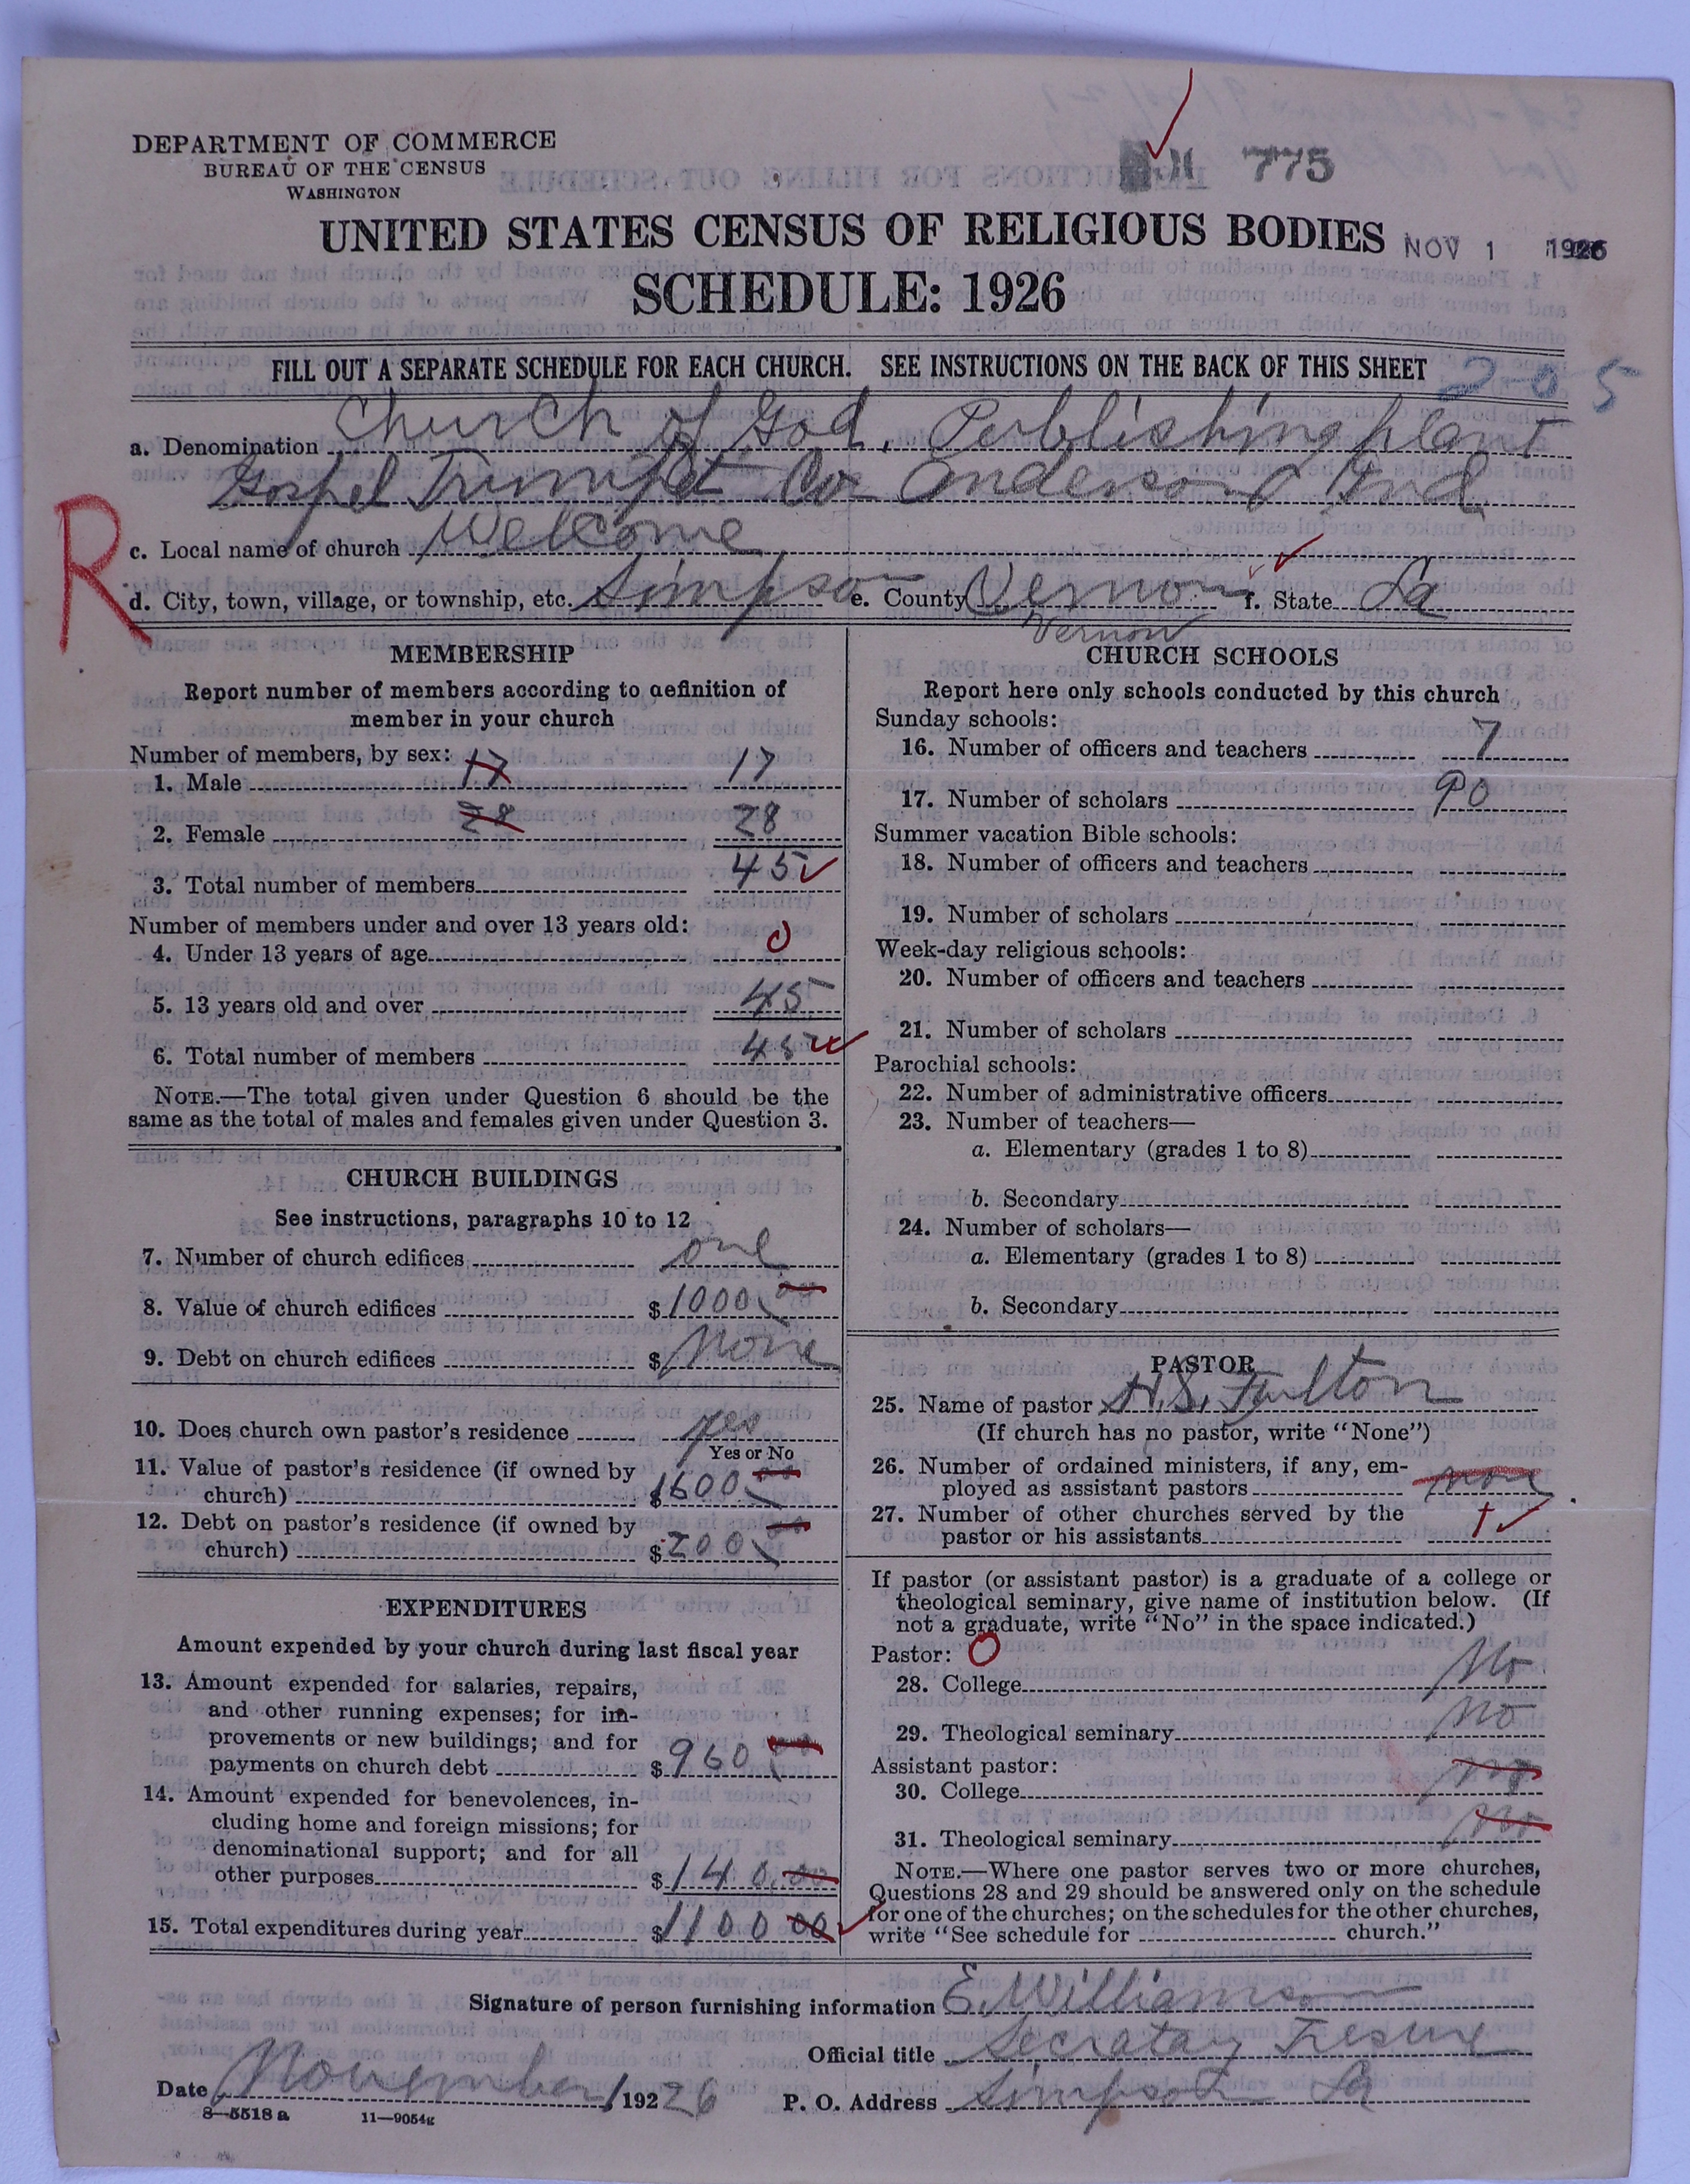 DEPARTMENT OF COMMERCE
BUREAU OF THE CENSUS
WASHINGTON
775
UNITED STATES CENSUS OF RELIGIOUS BODIES
NOV 1 1926
SCHEDULE: 1926
FILL OUT A SEPARATE SCHEDULE FOR EACH CHURCH. SEE INSTRUCTIONS ON THE BACK OF THIS SHEET
2-0 5
a. Denomination Church of God, Publishing plant
Gospel Trumpet Co Anderson Ind
R
c. Local name of church Welcome
d. City, town, village, or township, etc. Simpson e. County Vernon f. State La
Vernon
MEMBERSHIP
Report number of members according to definition of
member in your church
Number of members, by sex:
1. Male 17 17
2. Female 28 28
3. Total number of members 45
Number of members under and over 13 years old:
4. Under 13 years of age 0
5. 13 years old and over 45
6. Total number of members 45
NOTE.—The total given under Question 6 should be the
same as the total of males and females given under Question 3.
CHURCH BUILDINGS
See instructions, paragraphs 10 to 12
7. Number of church edifices one
8. Value of church edifices $1000.00
9. Debt on church edifices $ None
10. Does church own pastor's residence yes
Yes or No
11. Value of pastor's residence (if owned by
church) $1600.00
12. Debt on pastor's residence (if owned by
church) $200.00
EXPENDITURES
Amount expended by your church during last fiscal year
13. Amount expended for salaries, repairs,
and other running expenses; for im-
provements or new buildings; and for
payments on church debt $960.00
14. Amount expended for benevolences, in-
cluding home and foreign missions; for
denominational support; and for all
other purposes $140.00
15. Total expenditures during year $1100 00
CHURCH SCHOOLS
Report here only schools conducted by this church
Sunday schools:
16. Number of officers and teachers 7
17. Number of scholars 90
Summer vacation Bible schools:
18. Number of officers and teachers
19. Number of scholars
Week-day religious schools:
20. Number of officers and teachers
21. Number of scholars
Parochial schools:
22. Number of administrative officers
23. Number of teachers—
a. Elementary (grades 1 to 8)
b. Secondary
24. Number of scholars—
a. Elementary (grades 1 to 8)
b. Secondary
PASTOR
25. Name of pastor H.S. Fulton
(If church has no pastor, write "None")
26. Number of ordained ministers, if any, em-
ployed as assistant pastors none
27. Number of other churches served by the
pastor or his assistants
If pastor (or assistant pastor) is a graduate of a college or
theological seminary, give name of institution below. (If
not a graduate, write "No" in the space indicated.)
Pastor: O
28. College No
29. Theological seminary No
Assistant pastor:
30. College No
31. Theological seminary No
NOTE.—Where one pastor serves two or more churches,
Questions 28 and 29 should be answered only on the schedule
for one of the churches; on the schedules for the other churches,
write "See schedule for church."
Signature of person furnishing information E. Williamson
Official title Secratay Tresure
Date November 1 1926 P. O. Address Simpson La
8—5518 a 11—9054g